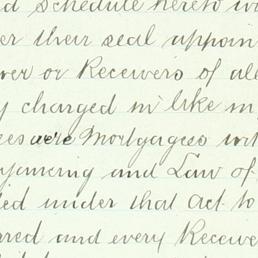 d schedule hereto w
er their seal appoin
ver or Receivers of all
y charged in like m
ees were Mortgagees wit
veyancing and Law of
ed under that Act to
rred and every Receive